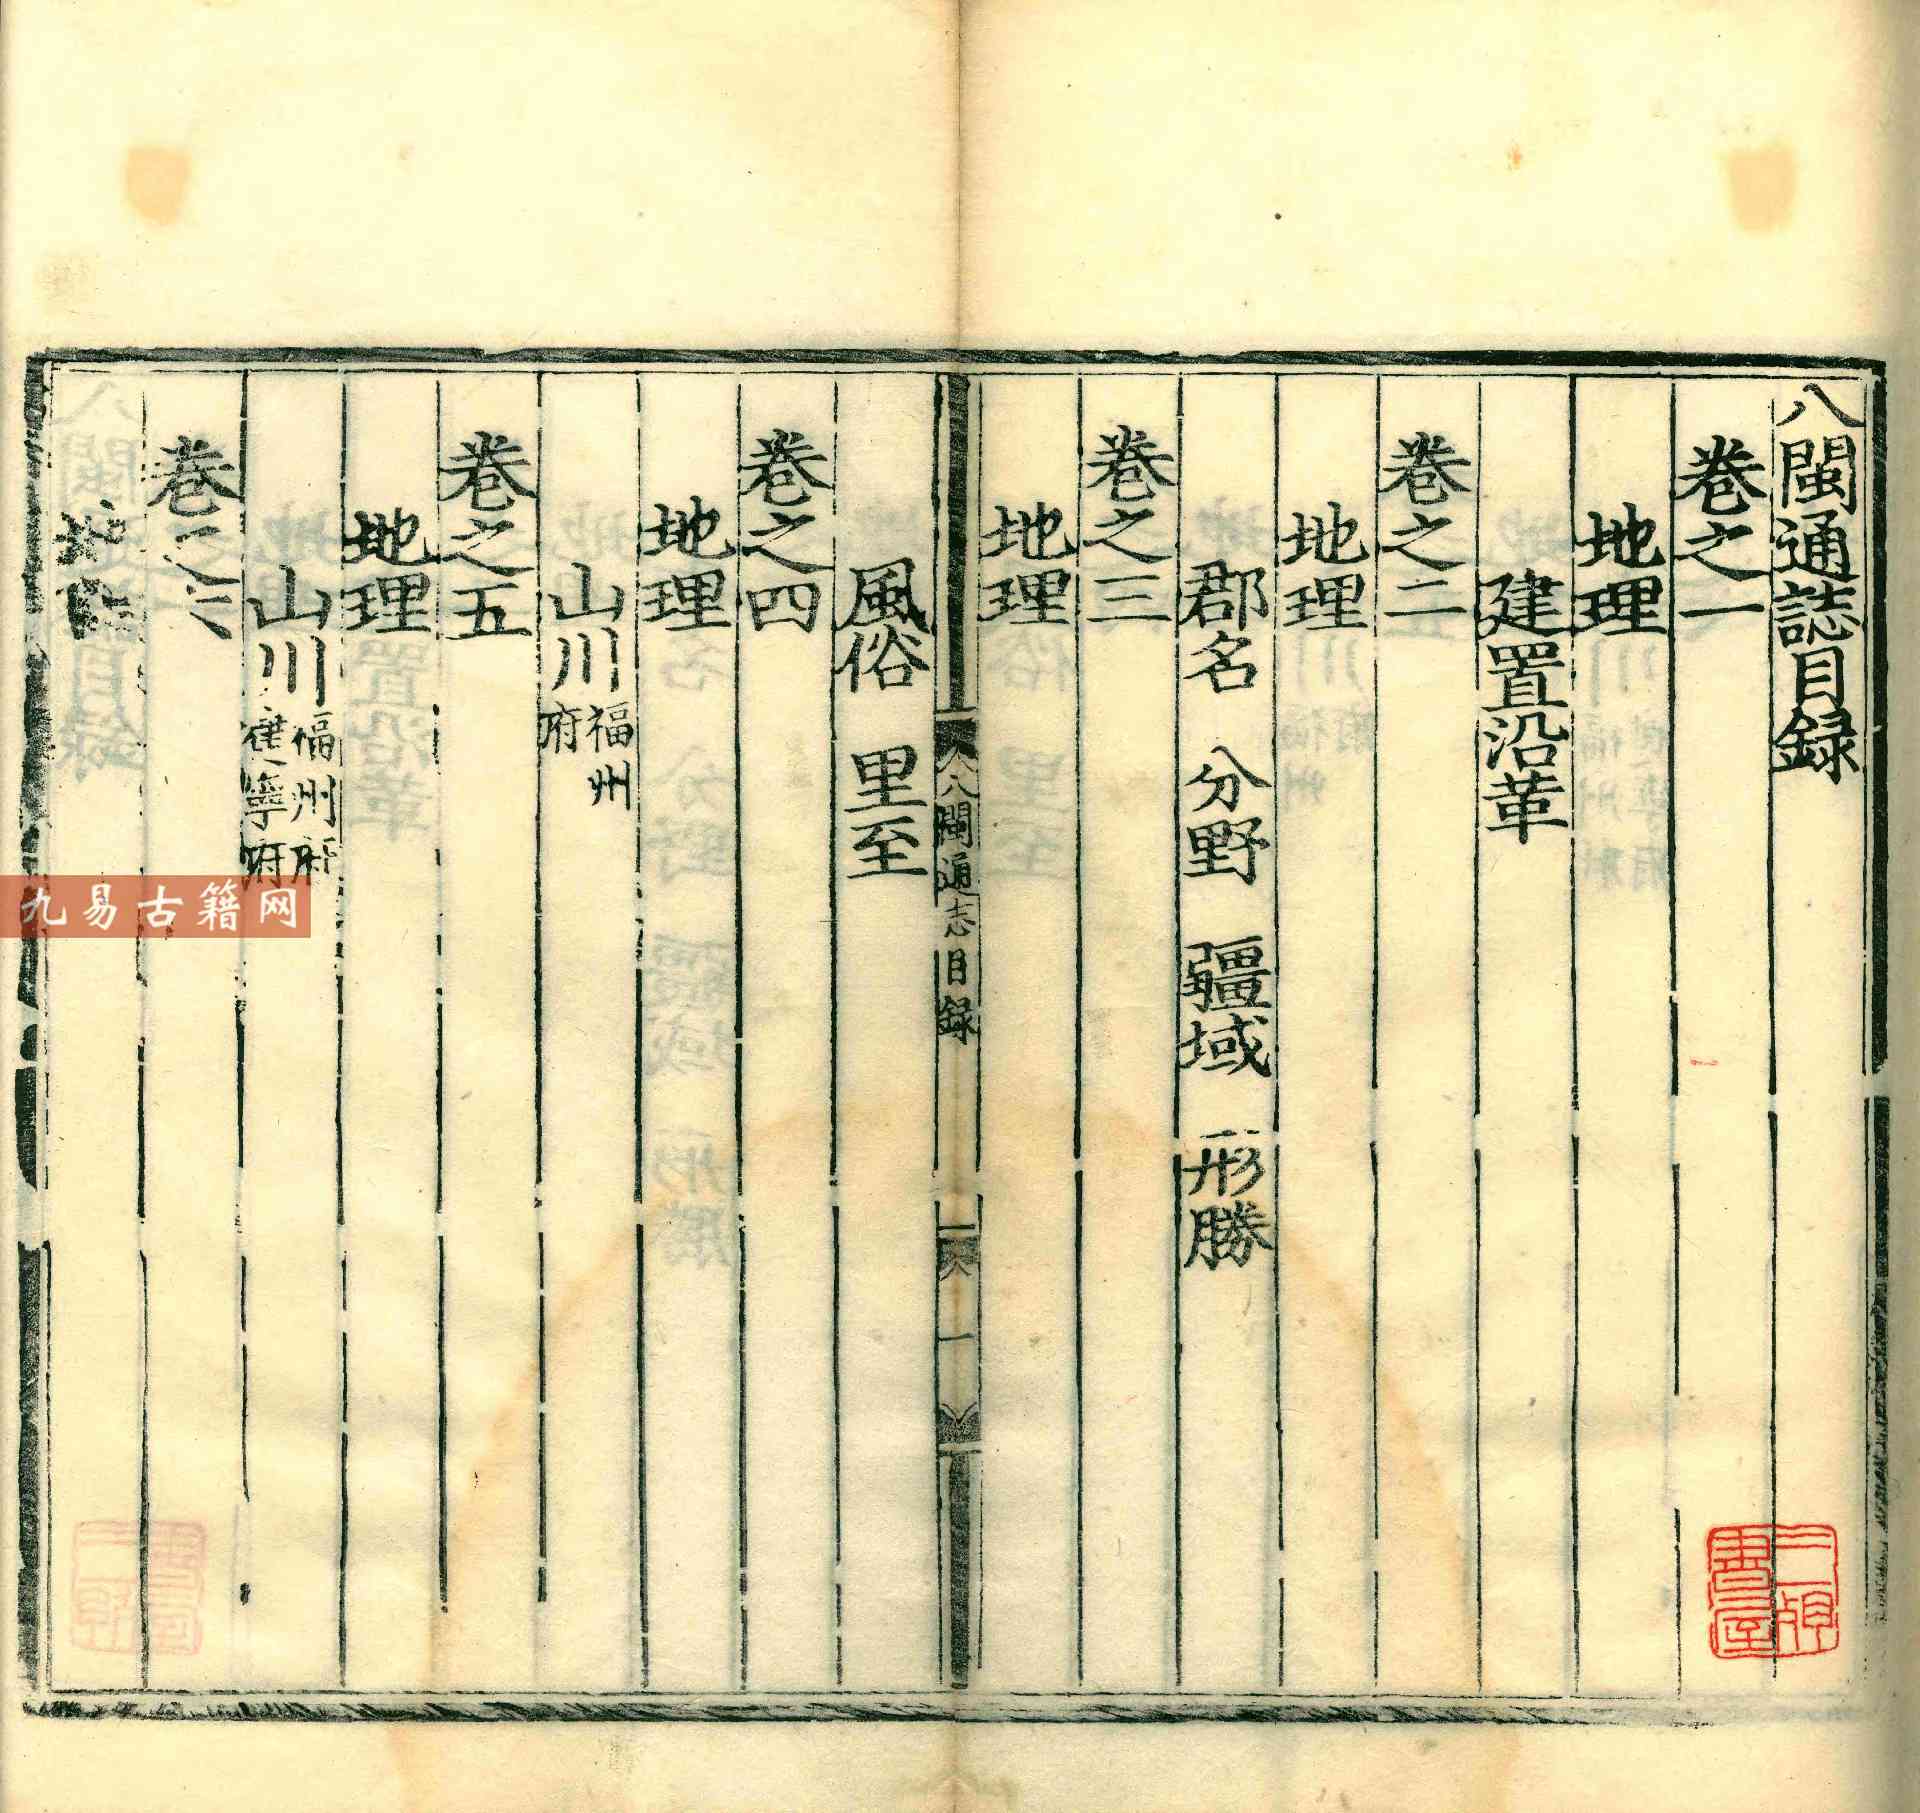 八閩通誌目録
卷之一
地理
建置沿革
卷之二
地理
郡名 分野 疆域 形勝
卷之三
地理
八閩通志目録
一
風俗 里至
卷之四
地理
山川福州府
卷之五
地理
山川福州府建寧府
卷之六
地理
九易古籍网